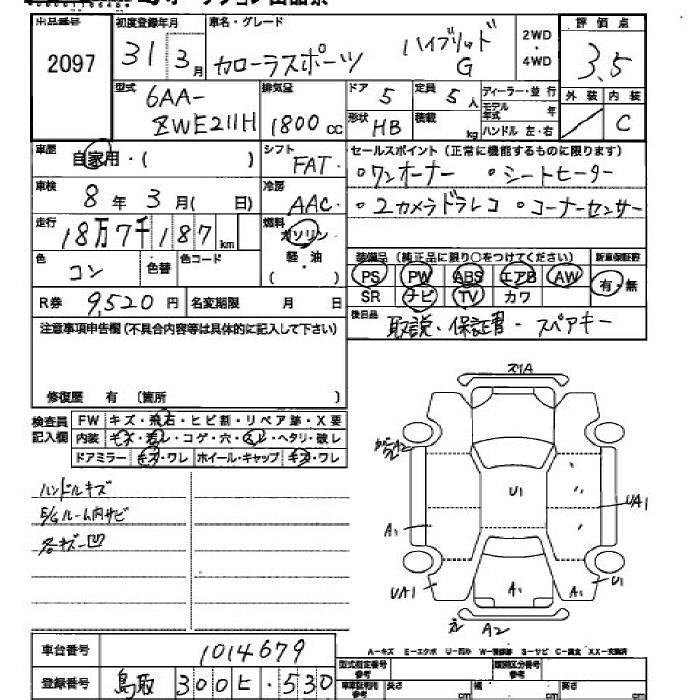 出品番号 初度登録年月 車名・グレード 2WD・4WD 評価点
2097 31 3月 カローラスポーツ ハイブリッド G 3.5
型式 6AA-ZWE211H 排気量 1800 cc
ドア 5 定員 5人 ディーラー・並行
形状 HB 積載 kg モデル年式 年
ハンドル 左・右
外装 内装 C
車歴 自家用・( )
シフト FAT
セールスポイント (正常に機能するものに限ります)
車検 8年3月( 日)
冷房 AAC
○ワンオーナー ○シートヒーター
○2カメラドラレコ ○コーナーセンサー
走行 18万7千187km
燃料 ガソリン・軽・油 ( )
色 コン 色替 色コード
装備品 (純正品に限り○をつけてください) 新車保証書
PS PW ABS エアB AW 有・無
SR ナビ TV カワ
R券 9,520円 名変期限 月 日
後日品 取説・保証書・スペアキー
注意事項申告欄 (不具合内容等は具体的に記入して下さい)
修復歴 有 〔箇所 〕
検査員記入欄
FW キズ・飛石・ヒビ割・リペア跡・X要
内装 キズ・汚レ・コゲ・穴・スレ・ヘタリ・破レ
ドアミラー キズ・ワレ ホイール・キャップ キズ・ワレ
ハンドルキズ
E/Gルーム内サビ
各キズ凹
スリA
A2
U1
UA1
A1
UA1
A1
A1
U1
A2
車台番号 1014679
A-キズ E-エクボ U-凹ミ S-サビ C-腐食 XX-交換済
登録番号 鳥取 300 ヒ・530
型式指定番号 参考 類別区分番号 参考
長さ cm 幅 cm 高さ cm